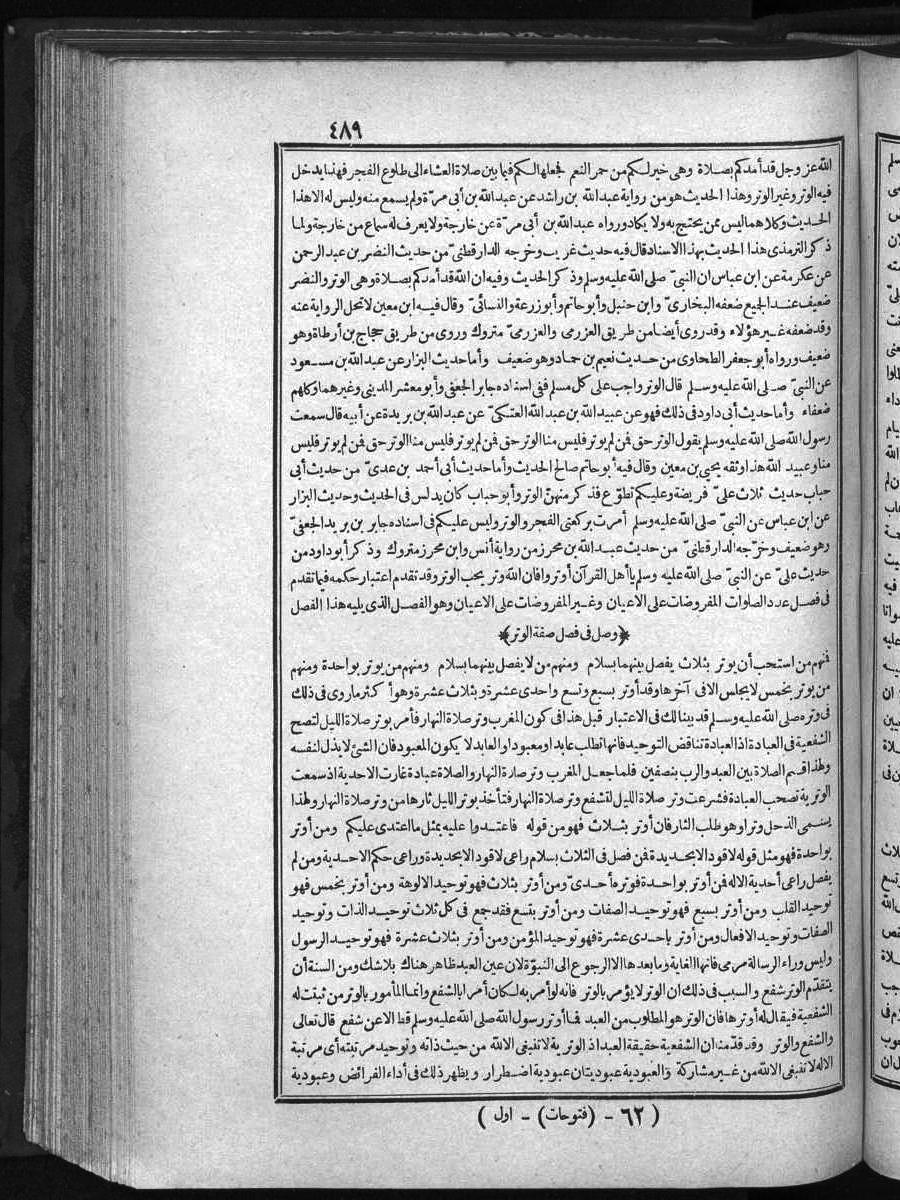 ٤٨٩
الله عز وجل قد أمدكم بصلاة وهى خير لكم من حمر النعم فجعلها لكم فيما بين صلاة العشاء الى طلوع الفجر فهذا يدخل
فيه الوتر وغير الوتر وهذا الحديث هو من رواية عبد الله بن راشد عن عبد الله بن أبى مرّة ولم يسمع منه وليس له الا هذا
الحديث وكلاهما ليس ممن يحتج به ولا يكاد ورواه عبد الله بن أبى مرّة عن خارجة ولا يعرف له سماع من خارجة ولما
ذكر الترمذى هذا الحديث بهذا الاسناد قال فيه حديث غريب وخرجه الدارقطنىّ من حديث النضر بن عبد الرحمن
عن عكرمة عن ابن عباس ان النبىّ صلى الله عليه وسلم وذكر الحديث وفيه ان الله قد أمدكم بصلاة وهى الوتر والنضر
ضعيف عند الجميع ضعفه البخارىّ وابن حنبل وأبو حاتم وأبو زرعة والنسائىّ وقال فيه ابن معين لا تحل الرواية عنه
وقد ضعفه غير هؤلاء وقد روى أيضا من طريق العزرمى والعزرمىّ متروك وروى من طريق حجاج بن أرطاة وهو
ضعيف ورواه أبو جعفر الطحاوى من حديث نعيم بن حماد وهو ضعيف وأما حديث البزار عن عبد الله بن مسعود
عن النبىّ صلى الله عليه وسلم قال الوتر واجب على كل مسلم ففى اسناده جابر الجعفى وأبو معشر المدينى وغيرهما وكلهم
ضعفاء وأما حديث أبى داود فى ذلك فهو عن عبيد الله بن عبد الله العتكىّ عن عبد الله بن بريدة عن أبيه قال سمعت
رسول الله صلى الله عليه وسلم يقول الوتر حق فمن لم يوتر فليس منا الوتر حق فمن لم يوتر فليس منا الوتر حق فمن لم يوتر فليس
منا وعبيد الله هذا وثقه يحيى بن معين وقال فيه أبو حاتم صالح الحديث وأما حديث أبى أحمد بن عدىّ من حديث أبى
حباب حديث ثلاث علىّ فريضة وعليكم تطوّع فذكر منهنّ الوتر وأبو حباب كان يدلس فى الحديث وحديث البزار
عن ابن عباس عن النبىّ صلى الله عليه وسلم أمرت بركعتى الفجر والوتر وليس عليكم فى اسناده جابر بن يزيد الجعفىّ
وهو ضعيف وخرّجه الدارقطنىّ من حديث عبد الله بن محرز من رواية أنس وابن محرز متروك وذكر أبو داود من
حديث علىّ عن النبىّ صلى الله عليه وسلم يا أهل القرآن أوتروا فان الله وتر يحب الوتر وقد تقدم اعتبار حكمه فيما تقدم
فى فصل عدد الصلوات المفروضات على الاعيان وغير المفروضات على الاعيان وهو الفصل الذى يليه هذا الفصل
﴿وصل فى فصل صفة الوتر﴾
فمنهم من استحب أن يوتر بثلاث يفصل بينهما بسلام ومنهم من لا يفصل بينهما بسلام ومنهم من يوتر بواحدة ومنهم
من يوتر بخمس لا يجلس الا فى آخرها وقد أوتر بسبع وتسع واحدى عشرة وبثلاث عشرة وهو أكثر ما روى فى ذلك
فى وتره صلى الله عليه وسلم قد بينا لك فى الاعتبار قبل هذا فى كون المغرب وتر صلاة النهار فأمر بوتر صلاة الليل لتصح
الشفعية فى العبادة اذ العبادة تناقض التوحيد فانها تطلب عابدا ومعبودا والعابد لا يكون المعبود فان الشئ لا يذل لنفسه
ولهذا قسم الصلاة بين العبد والرب بنصفين فلما جعل المغرب وتر صلاة النهار والصلاة عبادة غارت الاحدية اذ سمعت
الوترية تصحب العبادة فشرعت وتر صلاة الليل لتشفع وتر صلاة النهار فتأخذ بوتر الليل ثارها من وتر صلاة النهار ولهذا
يسمى الذحل وترا وهو طلب الثار فان أوتر بثلاث فهو من قوله فاعتدوا عليه بمثل ما اعتدى عليكم ومن أوتر
بواحدة فهو مثل قوله لا قود الا بحديدة فمن فصل فى الثلاث بسلام راعى لا قود الا بحديدة وراعى حكم الاحدية ومن لم
يفصل راعى أحدية الاله فمن أوتر بواحدة فوتره أحدىّ ومن أوتر بثلاث فهو توحيد الالوهة ومن أوتر بخمس فهو
توحيد القلب ومن أوتر بسبع فهو توحيد الصفات ومن أوتر بتسع فقد جمع فى كل ثلاث توحيد الذات وتوحيد
الصفات وتوحيد الافعال ومن أوتر باحدى عشرة فهو توحيد المؤمن ومن أوتر بثلاث عشرة فهو توحيد الرسول
وليس وراء الرسالة مرمى فانها الغاية وما بعدها الا الرجوع الى النبوّة لان عين العبد ظاهر هناك بلا شك ومن السنة أن
يتقدّم الوتر شفع والسبب فى ذلك ان الوتر لا يؤمر بالوتر فانه لو أمر به لكان أمرا بالشفع وانما المأمور بالوتر من ثبتت له
الشفعية فيقال له أوترها فان الوتر هو المطلوب من العبد فما أوتر رسول الله صلى الله عليه وسلم قط الا عن شفع قال تعالى
والشفع والوتر وقد قدّمنا ان الشفعية حقيقة العبد اذ الوترية لا تنبغى الا لله من حيث ذاته وتوحيد مرتبته أى مرتبة
الاله لا تنبغى الا لله من غير مشاركة والعبودية عبوديتان عبودية اضطرار ويظهر ذلك فى أداء الفرائض وعبودية
( ٦٢ - (فتوحات) - اول )